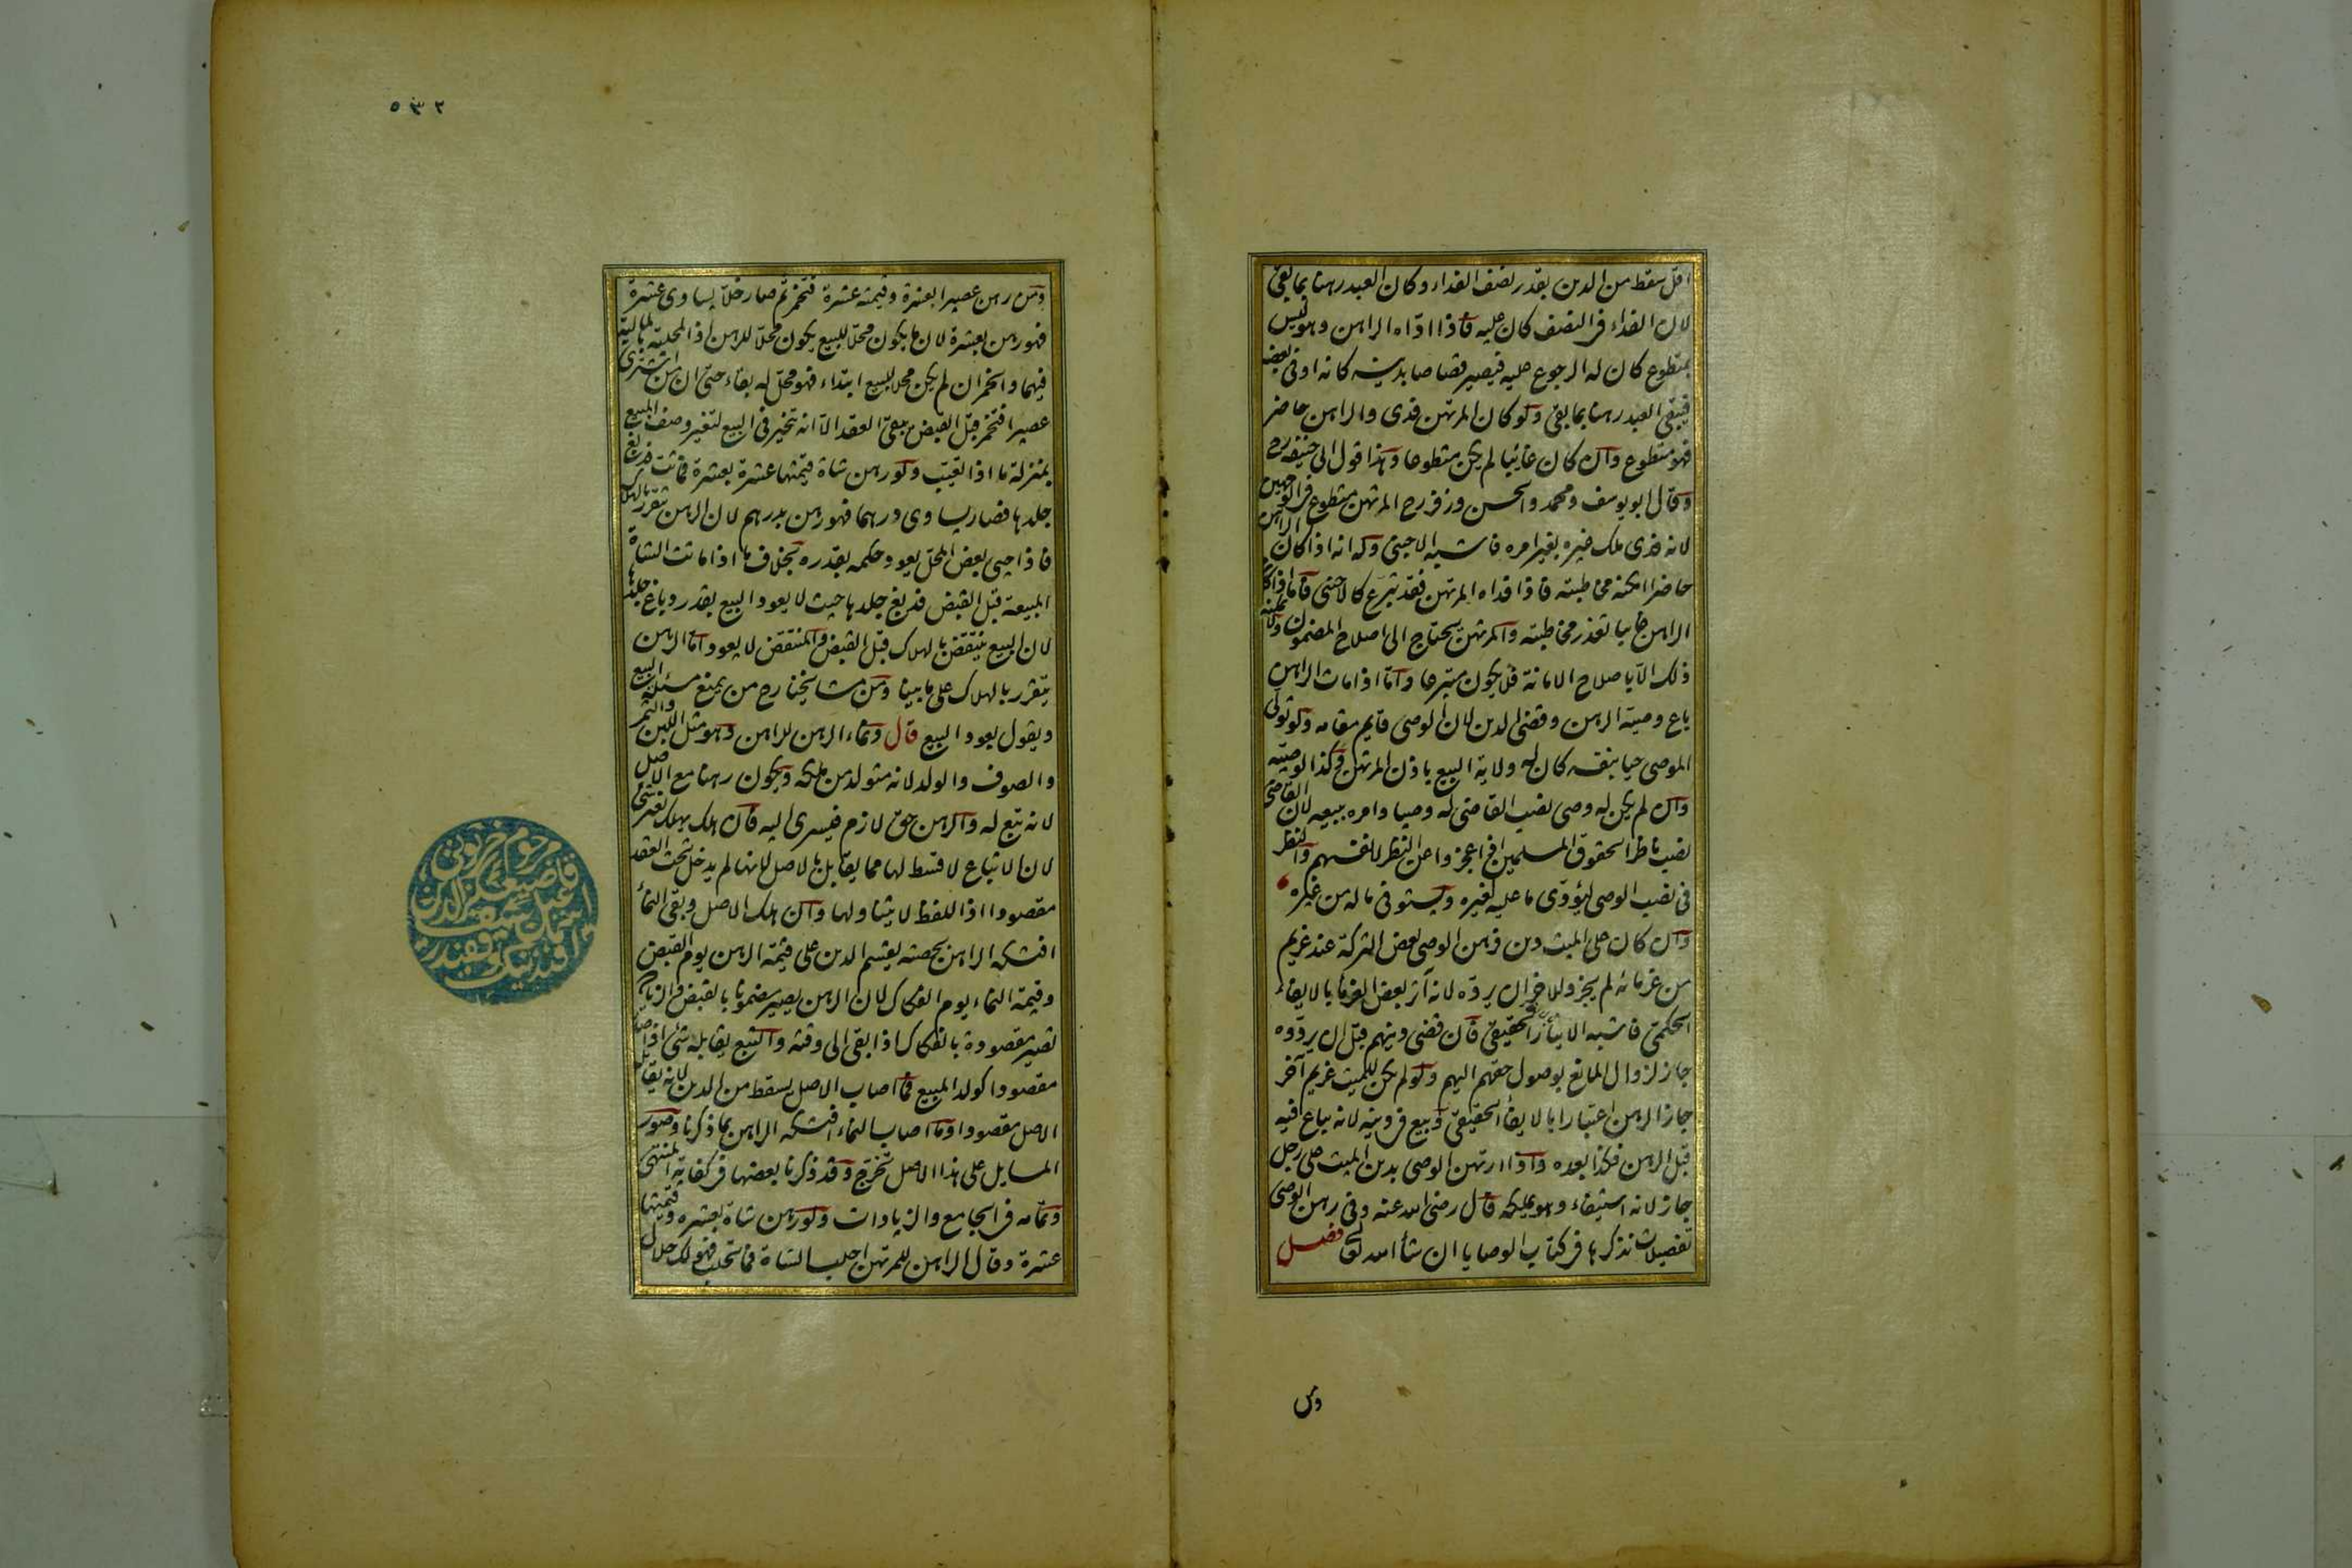 اقل سقط من الدين بقدر نصف الفداء وكان العبد رهنا بما بقي
لان الفداء في النصف كان عليه فاذا اداه الراهن وهو ليس
بمتطوع كان له الرجوع عليه فيصير قصاصا بدينه كانه اوفى نصفه
فيبقى العبد رهنا بما بقي ولو كان المرتهن فدى والراهن حاضر
فهو متطوع وان كان غائبا لم يكن متطوعا وهذا قول ابي حنيفه رح
وقال ابو يوسف ومحمد والحسن وزفر رح المرتهن متطوع في الوجهين
لانه فدى ملك غيره بغير امره فاشبه الاجنبي وله انه اذا كان الراهن
حاضرا امكنه مخاطبته فاذا فداه المرتهن فقد تبرع كالاجنبي فاما اذا كان
الراهن غايبا تعذر مخاطبته والمرتهن يحتاج الى اصلاح المضمون ولا يمكنه
ذلك الا باصلاح الامانة فلا يكون متبرعا واما اذا مات الراهن
باع وصيه الرهن وقضى الدين لان الوصي قايم مقامه ولو تولى
الموصى حيا بنفسه كان له ولاية البيع باذن المرتهن وكذا لوصيته
وان لم يكن له وصي نصب القاضي له وصيا وامره ببيعه لان القاضي
نصب ناظرا لحقوق المسلمين اذا عجزوا عن النظر لانفسهم والنظر
في نصب الوصي ليؤدى ما عليه لغيره ويستوفي ما له من غيره
وان كان على الميت دين فرهن الوصي بعض التركة عند غريم
من غرمائه لم يجز وللاخر ان يرده لانه آثر بعض الغرما بالايفاء
الحكمي فاشبه الايثار الحقيقي فان قضى دينهم قبل ان يردوه
جاز لزوال المانع بوصول حقهم اليهم ولو لم يكن للميت غريم آخر
جاز الرهن اعتبارا بالايفا الحقيقي وبيع في دينه لانه يباع فيه
قبل الرهن فكذا بعده واذا ارتهن الوصي بدين الميت على رجل
جاز لانه استيفاء وهو يملكه قال رضي الله عنه وفي رهن الوصي
تفصيلات نذكرها في كتاب الوصايا ان شا الله تعالى فصل
ومن
٥٣٢
ومن رهن عصيرا بعشرة وقيمته عشرة فتخمر ثم صار خلا يساوى عشرة
فهو رهن بعشرة لان ما يكون محلا للبيع يكون محلا للرهن اذ المحلية بالمالية
فيهما والخمر ان لم يكن محلا للبيع ابتداء فهو محل له بقاء حتى ان من اشترى
عصيرا فتخمر قبل القبض يبقى العقد الا انه يتخير في البيع لتغير وصف المبيع
بمنزلة ما اذا تعيب ولو رهن شاة قيمتها عشرة بعشرة فماتت فدبغ
جلدها فصار يساوى درهما فهو رهن بدرهم لان الرهن يتقرر بالهلاك
فاذا حيي بعض المحل يعود حكمه بقدره بخلاف ما اذا ماتت الشاة
المبيعة قبل القبض فدبغ جلدها حيث لا يعود البيع بقدر دباغ جلدها
لان البيع ينتقض بالهلاك قبل القبض والمنتقض لا يعود اما الرهن
يتقرر بالهلاك على ما بينا ومن مشايخنا رح من يمنع مسئلة البيع
ويقول يعود البيع قال ونماء الرهن للراهن وهو مثل اللبن والثمر
والصوف والولد لانه متولد من ملكه ويكون رهنا مع الاصل
لانه تبع له والرهن حق لازم فيسرى اليه فان هلك يهلك بغير شئ
لان الاتباع لا قسط لها مما يقابل بالاصل لانها لم يدخل تحت العقد
مقصودا اذ اللفظ لا يتناولها وان هلك الاصل وبقي النماء
افتكه الراهن بحصته يقسم الدين على قيمة الرهن يوم القبض
وقيمة النماء يوم الفكاك لان الرهن يصير مضمونا بالقبض والزيادة
تصير مقصودة بالفكاك اذا بقي الى وقته والتبع يقابله شئ اذا صار
مقصودا كولد المبيع فما اصاب الاصل يسقط من الدين لانه يقابله
الاصل مقصودا وما اصاب النماء افتكه الراهن بما ذكرنا وصور
المسايل على هذا الاصل تخرج وقد ذكرنا بعضها في كفاية المنتهى
وتمامه في الجامع والزيادات ولو رهن شاة بعشره وقيمتها
عشرة وقال الراهن للمرتهن احلب الشاة فما تحلب فهو لك حلال